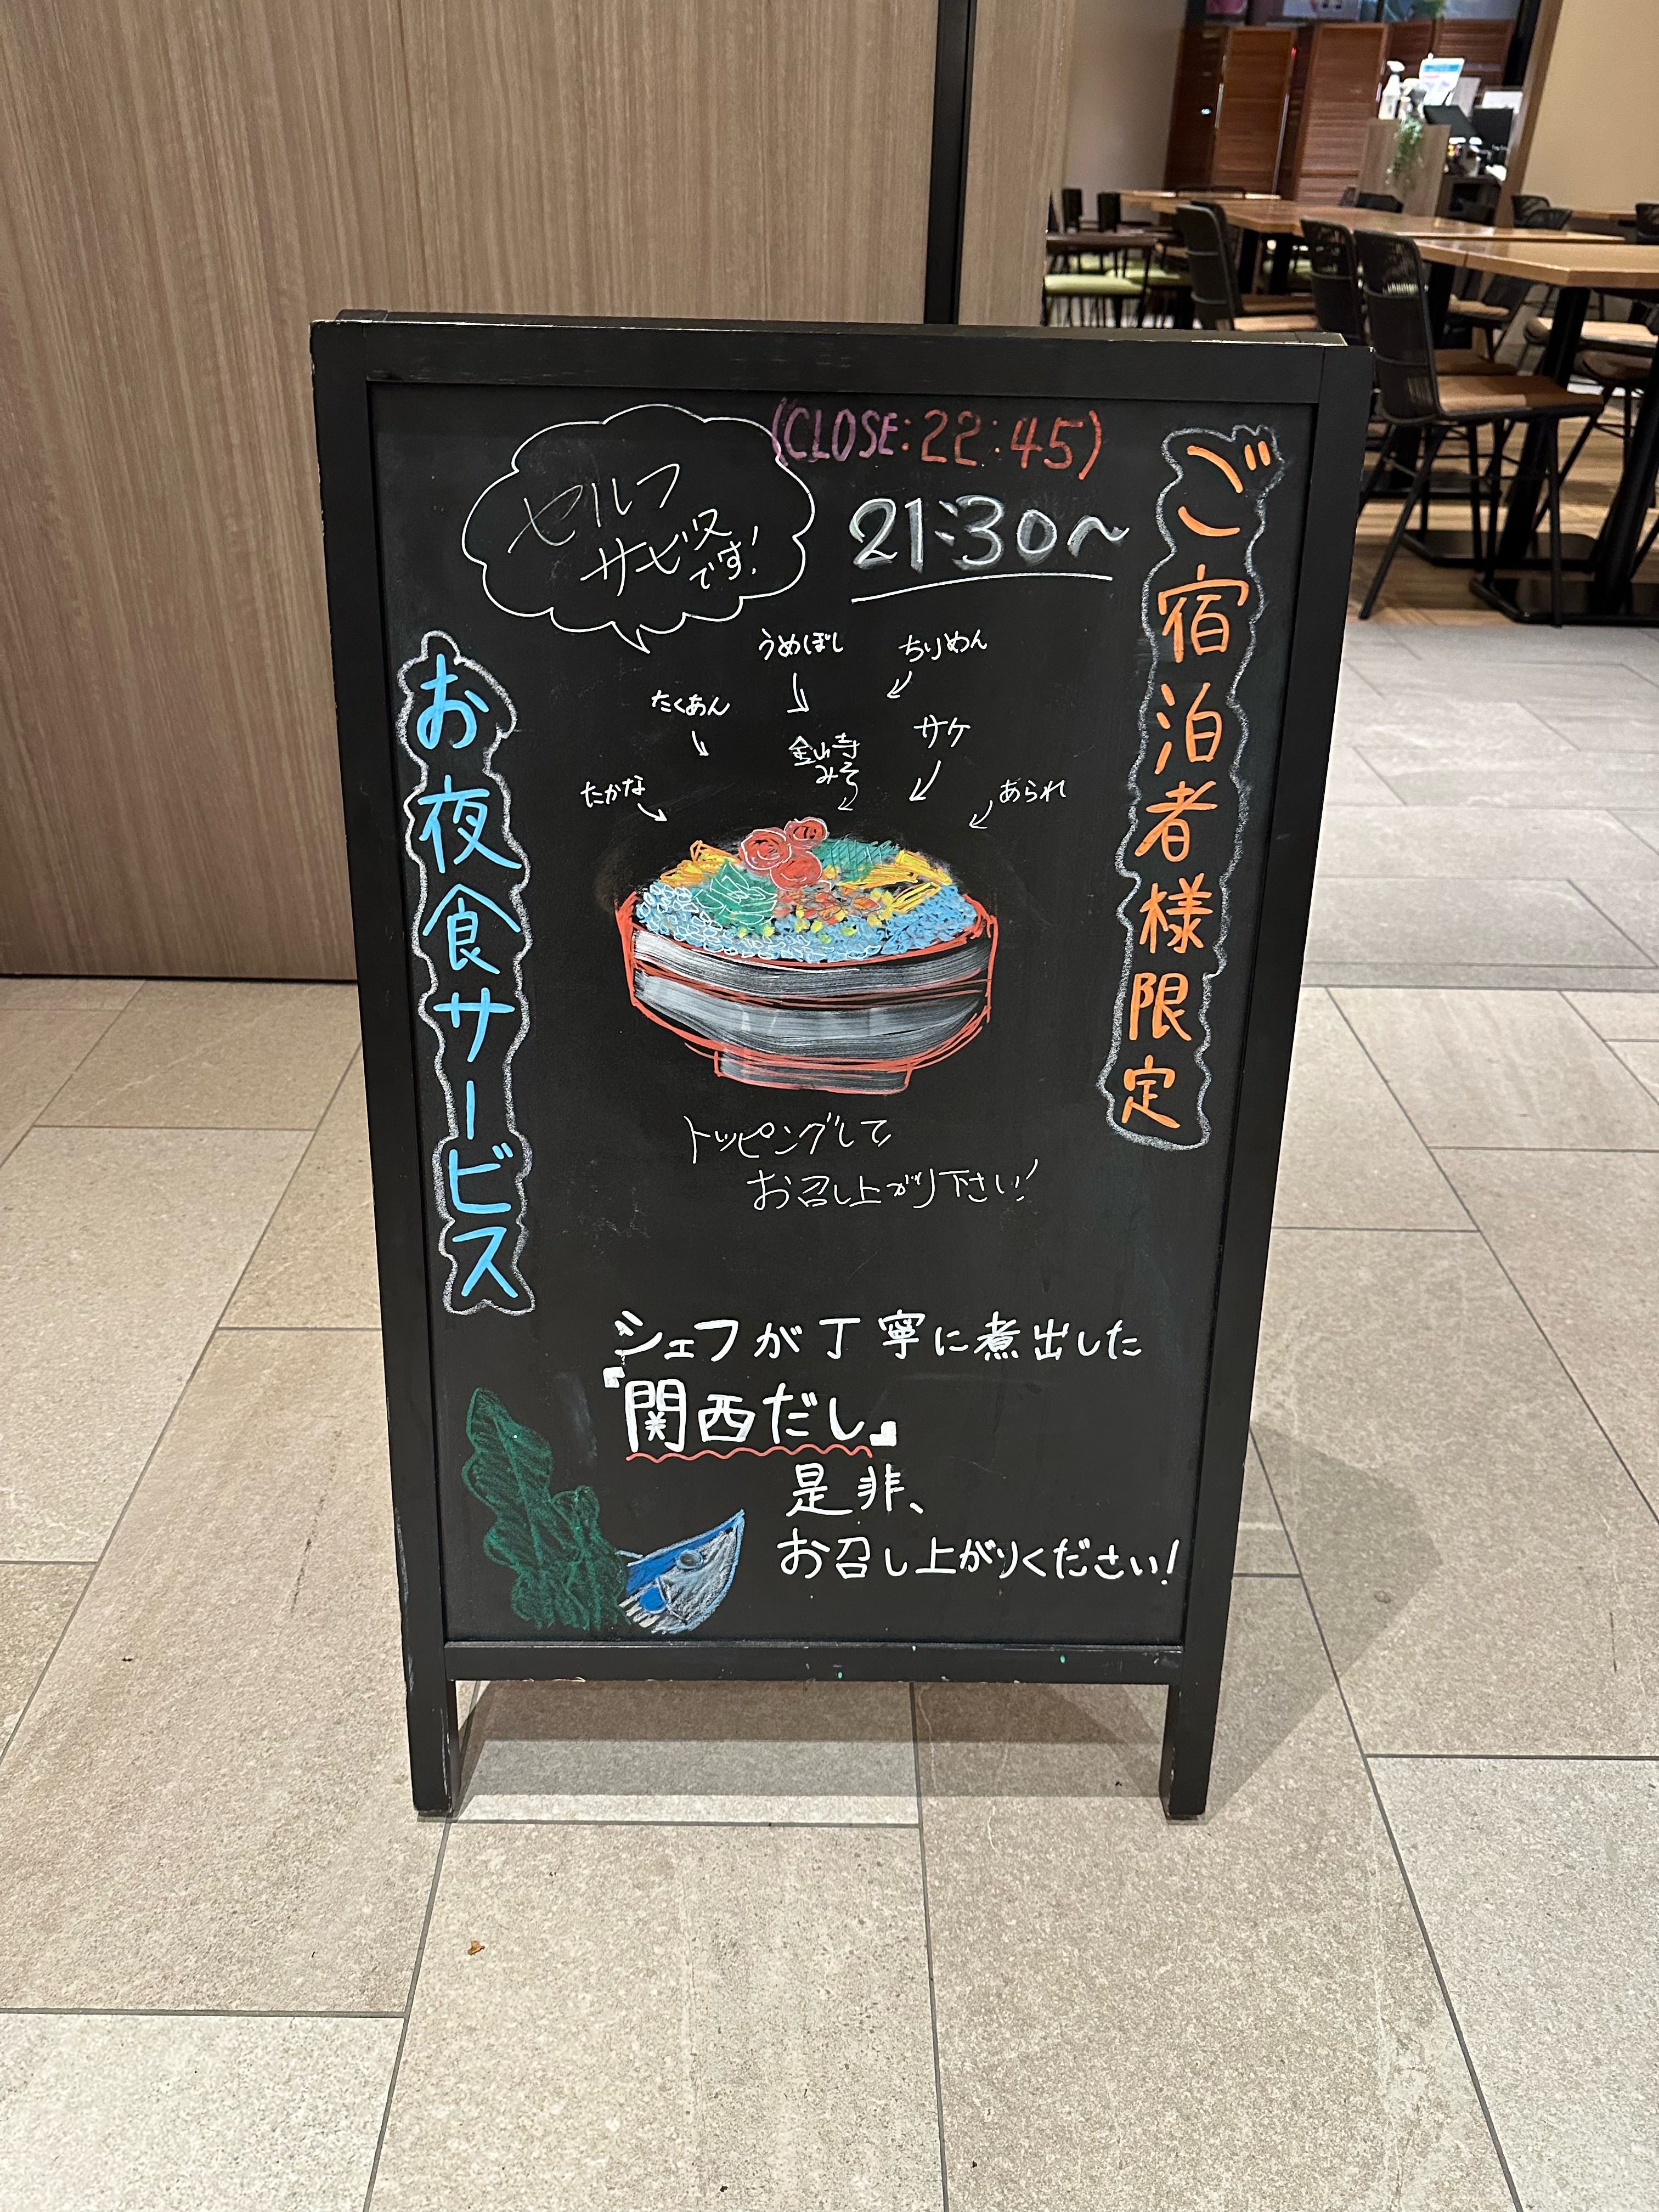 ご宿泊者様限定
(CLOSE:22:45)
21:30〜
セルフ
サービス
です!
うめぼし
ちりめん
たくあん
金山寺
みそ
サケ
たかな
あられ
トッピングして
お召し上がり下さい!
お夜食サービス
シェフが丁寧に煮出した
『関西だし』
是非、
お召し上がりください!